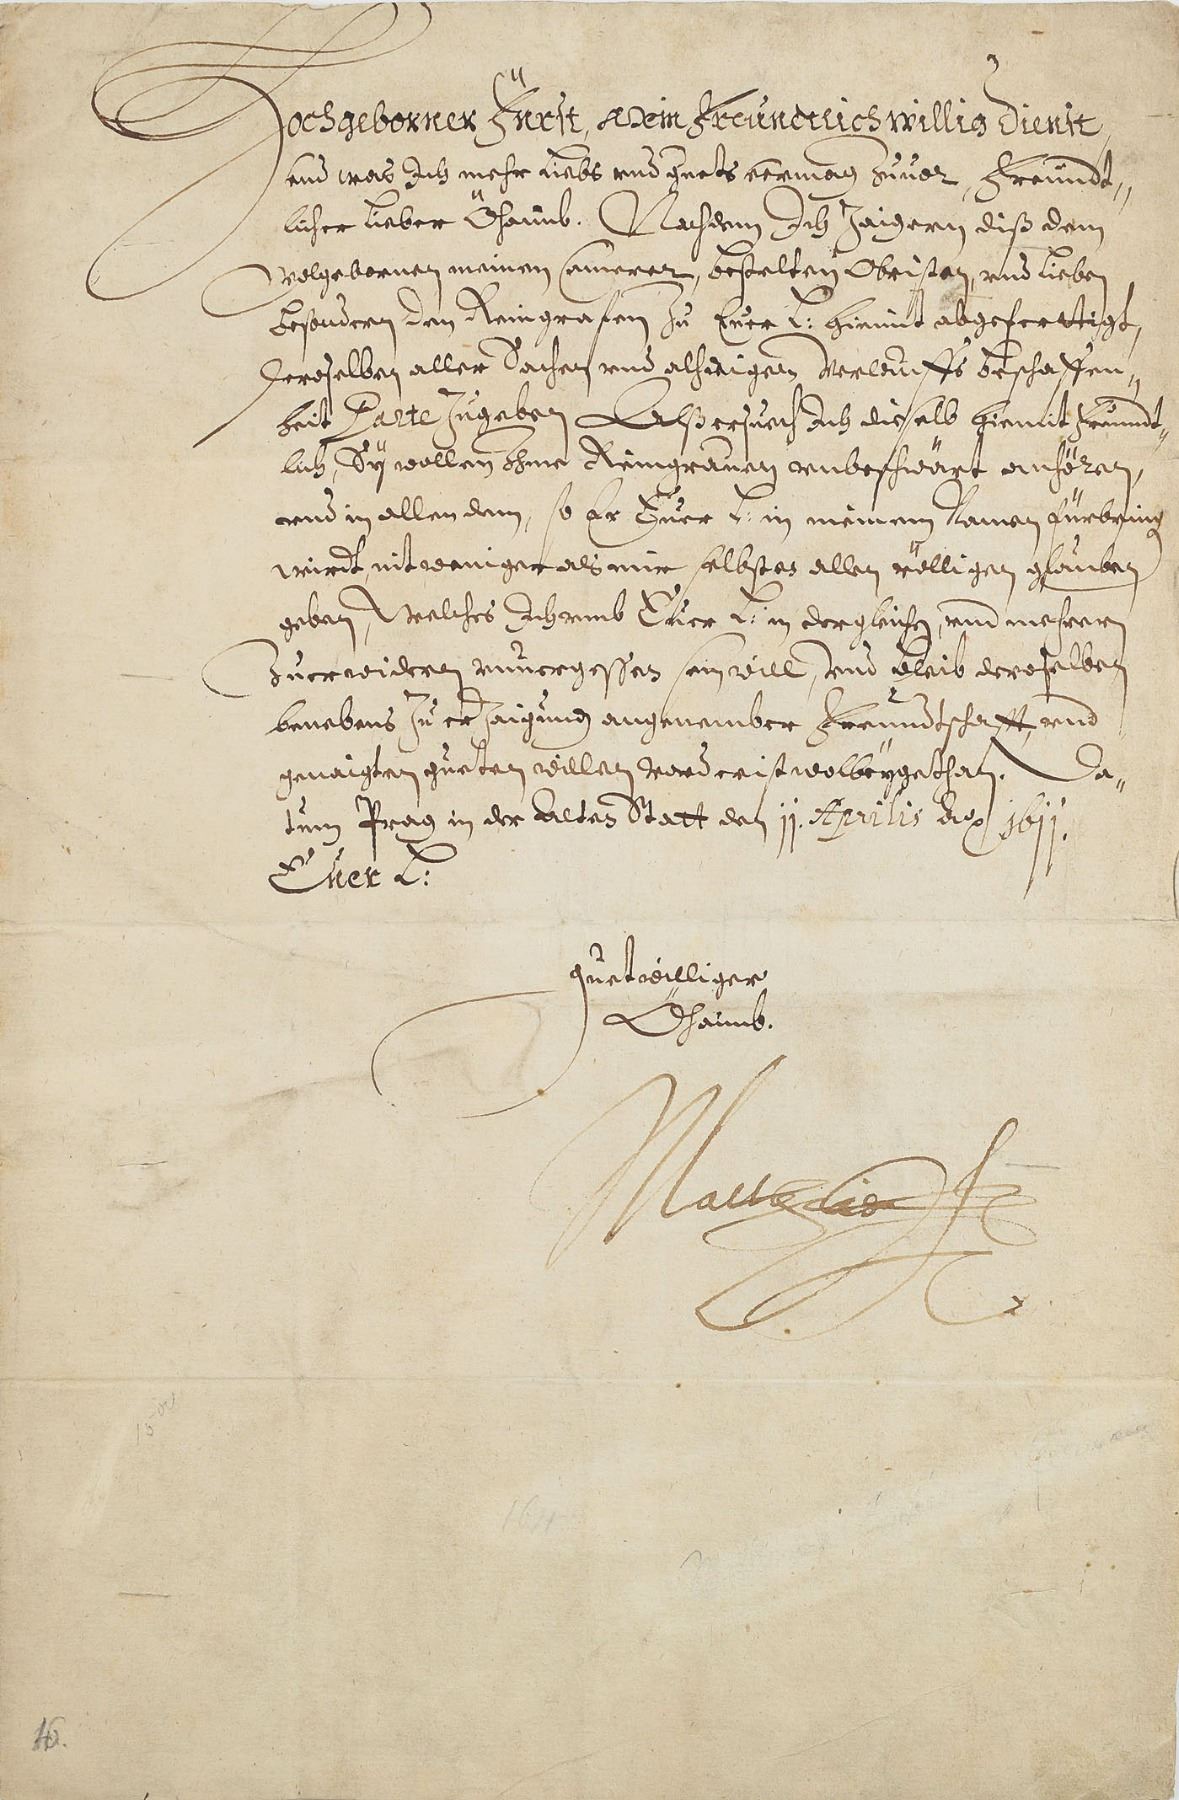 Hochgeborner Fürst, Mein Freundtlich willig Dienst,
vnd was Ich mehr Liebs vnd guets vermag zuuor, Freundt„
licher Lieber Öhaimb. Nachdem Ich Zaigern diß dem
Wolgebornen meinem Camerer, bestelten Obristen, vnd Lieben
besondern den Reingrafen zu Euer L: hiemit abgeferttigt,
derselben aller Sachen vnd alhieigen Verlauffs beschaffen„
heit Parte zugeben Alß ersuech Ich dieselb hiemit Freundt„
lich, Sÿ wollen Ihme Reingrauen vnbeschwärt anhören,
vnd in allem dem, so Er Euer L: in meinem Namen fürbring
wirdt, nit weniger als mir selbsten allen völligen glauben
geben, Welches Ich vmb Euer L: in dergleichen, vnd mehrern
zuerwidern vnuergessen sein will, vnd bleib deroselben
benebens zu erzaigung angenember Freundtschafft, vnd
genaigten gueten willen vorderist wolbeÿgethan. Da„
tum Prag in der Alten Statt den 11. Aprilis Ao 1611.
Euer L:
guetwilliger
Öhaimb.
Matthias
16.